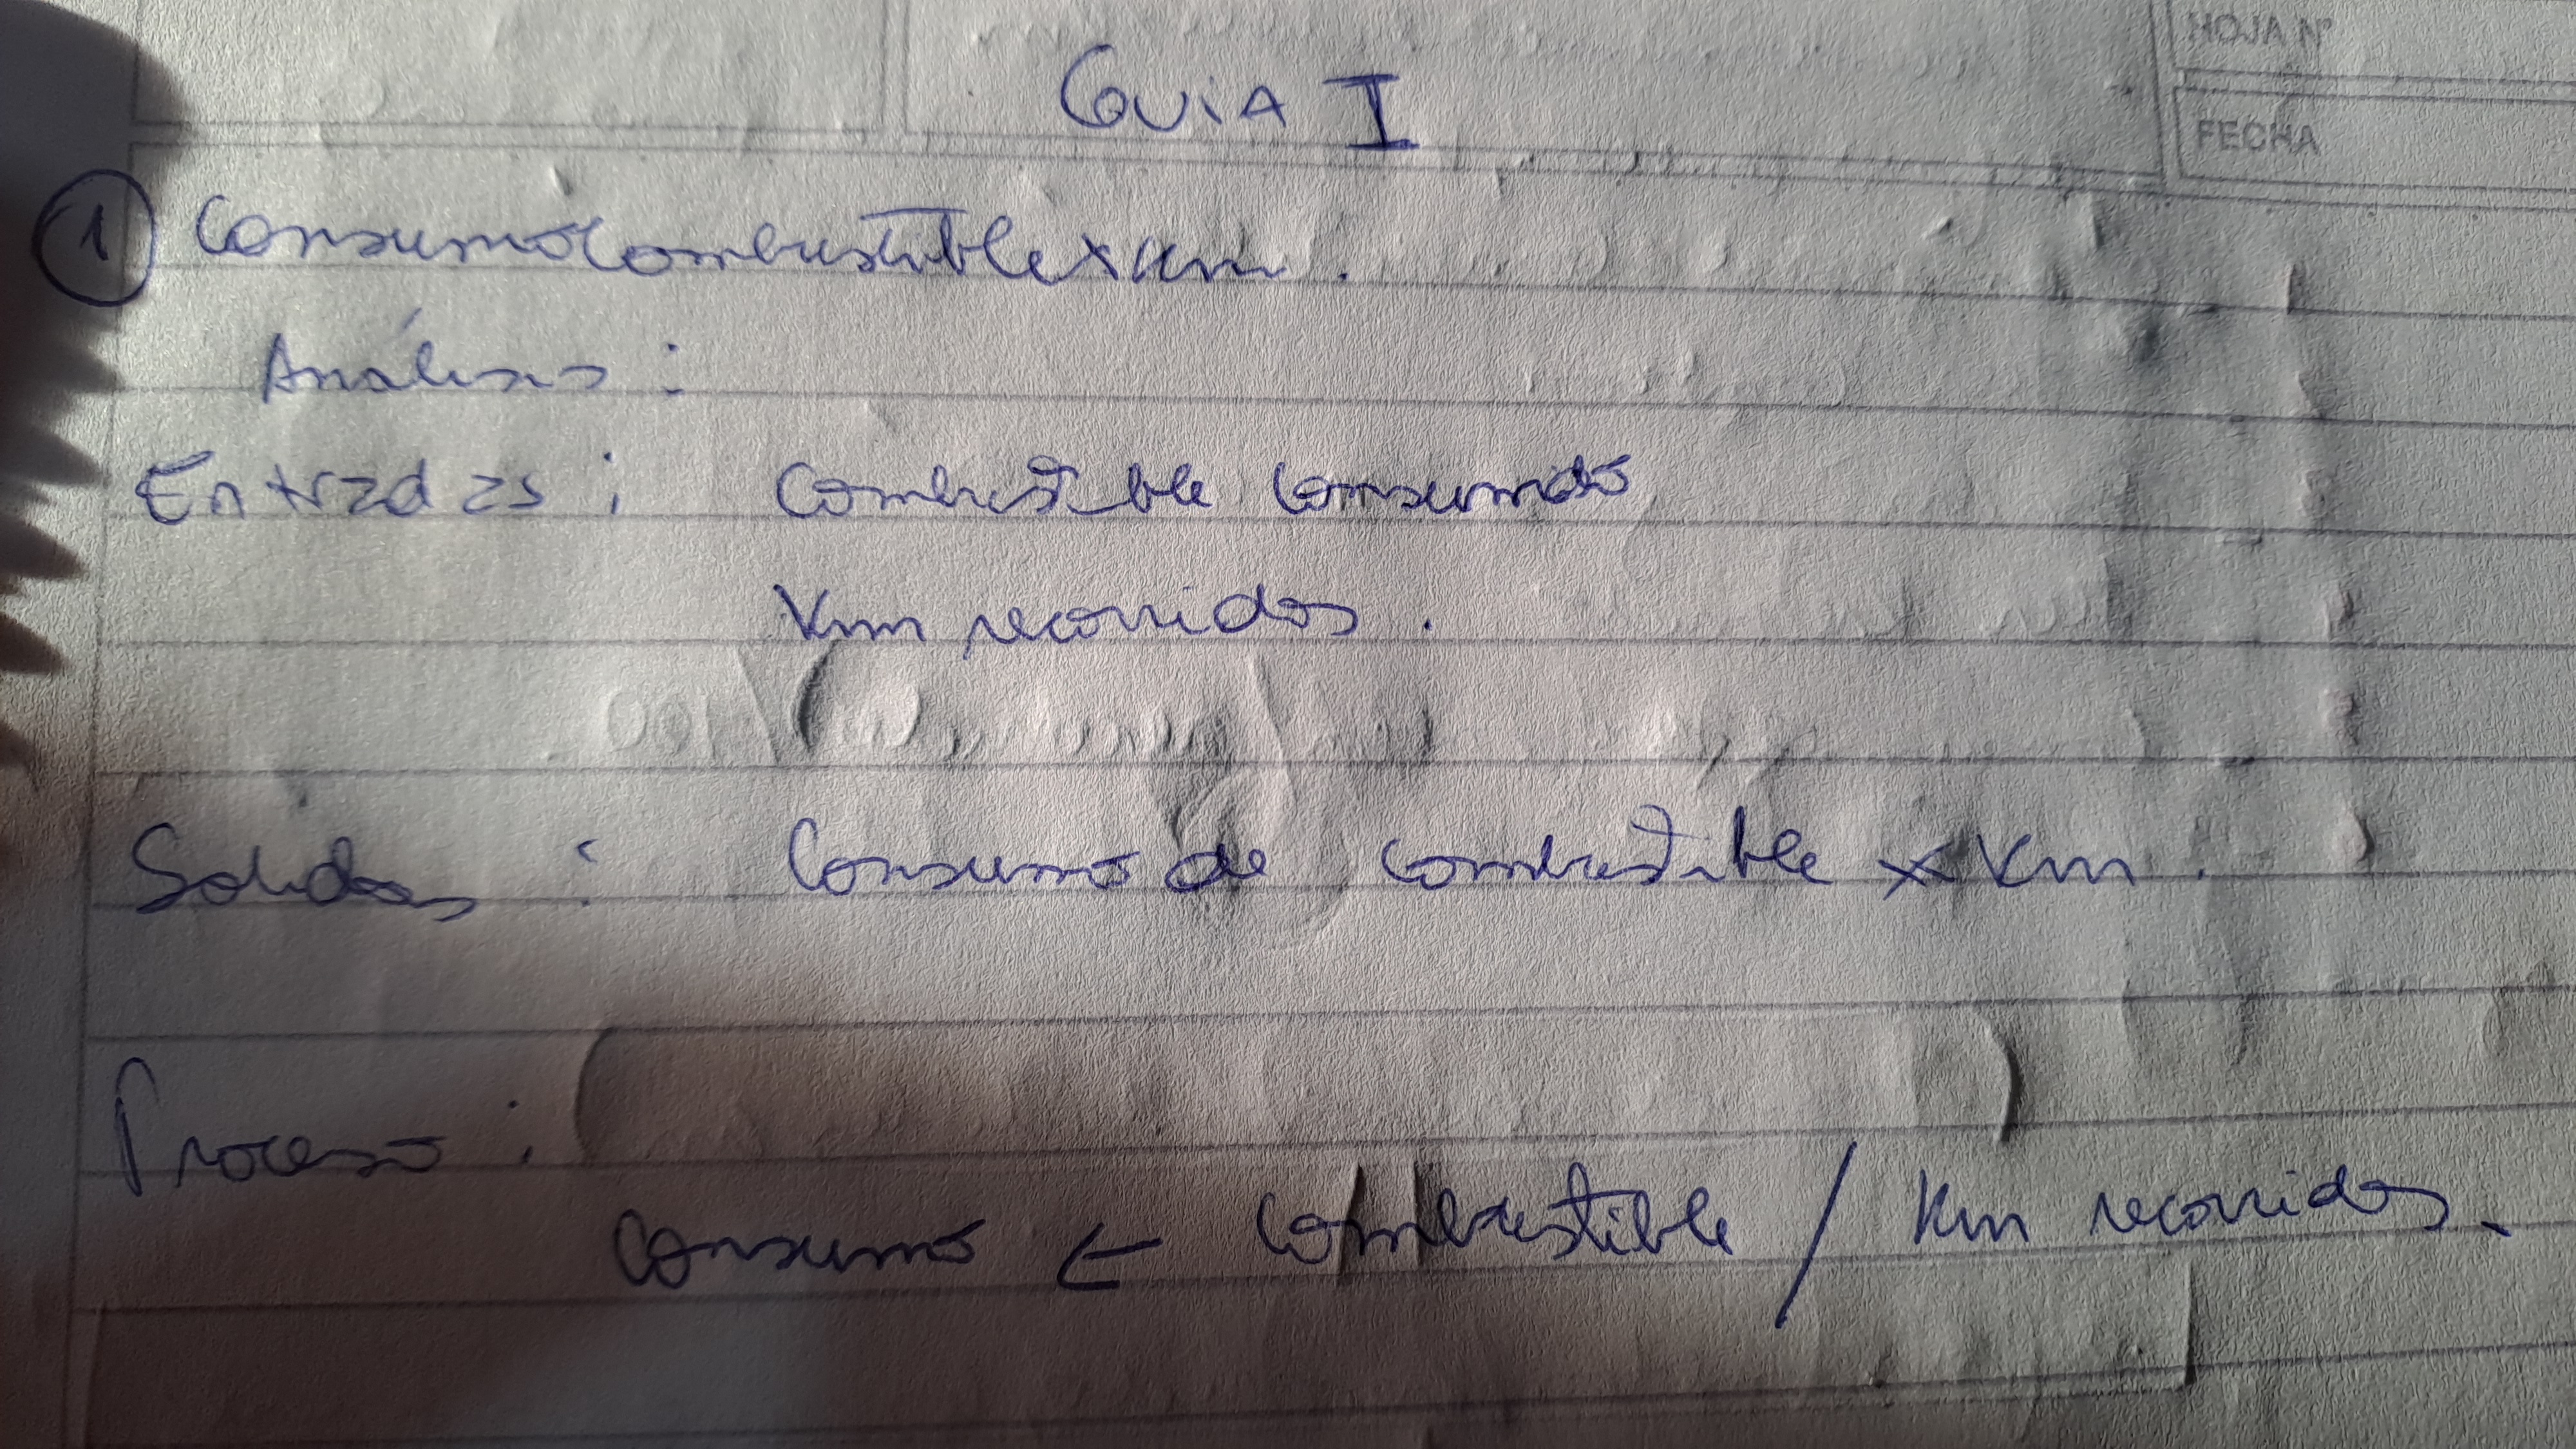 GUIA I
HOJA Nº
FECHA
① ConsumoCombustiblexKm.
Análisis:
Entradas: Combustible Consumido
Km recorridos.
Salidas: Consumo de Combustible x Km.
Proceso:
Consumo ← Combustible / Km recorridos.